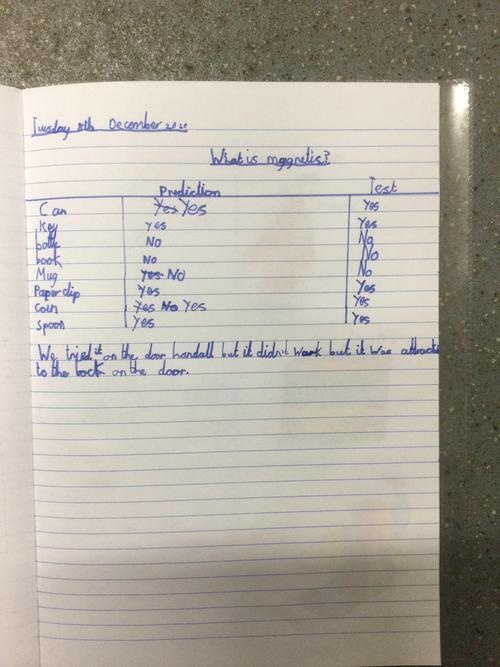 Tuesday 8th December 2020
What is magnetis?
Prediction Test
Can Yes Yes Yes
Key Yes Yes
No No
book No No
Mug Yes No No
Paperclip Yes Yes
Coin Yes No Yes Yes
Spoon Yes Yes
We tried it on the door handall but it didn't work but it was attract
to the lock on the door.